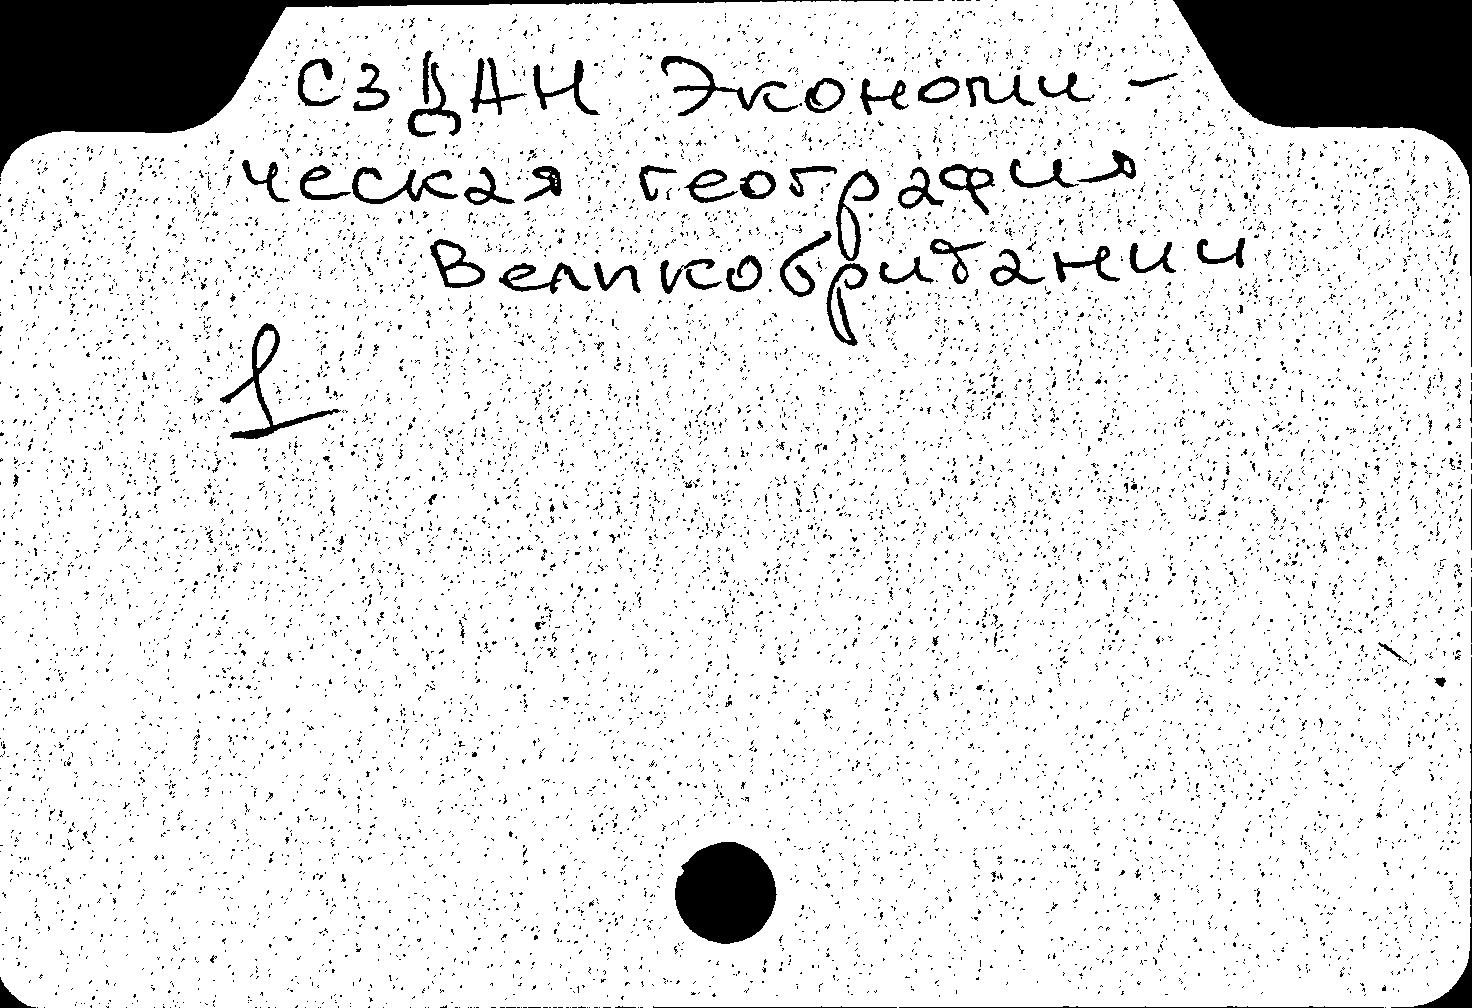 СЗДАН Экономи-
ческая география
Великобритании
1